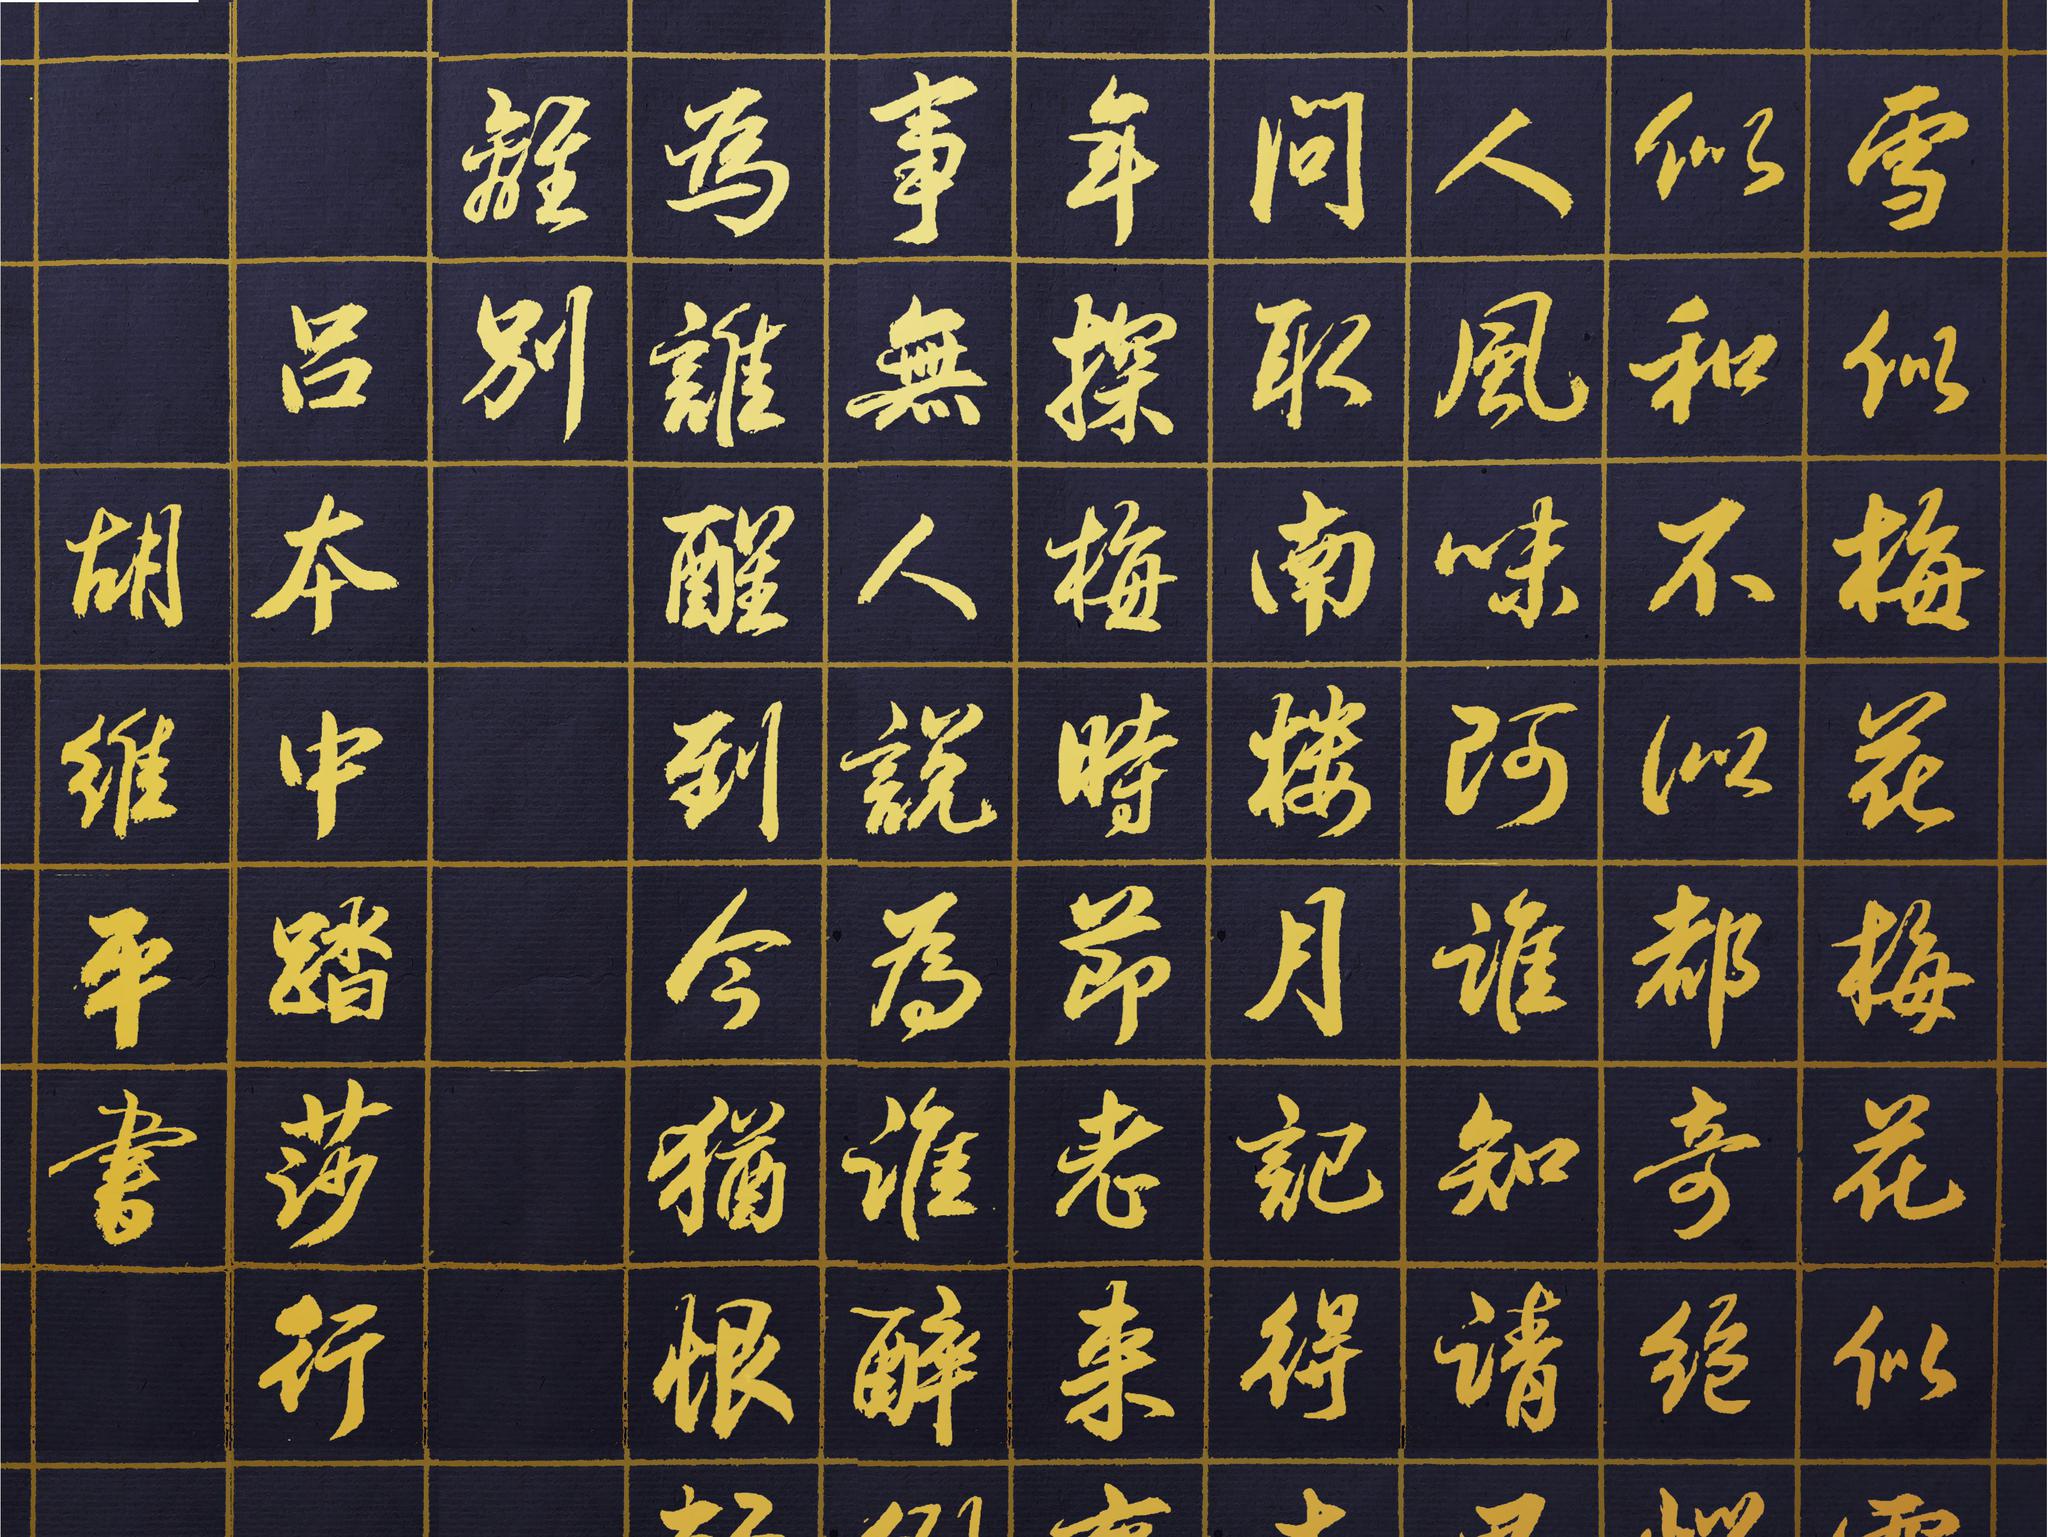 雪似梅花梅花似
似和不似都奇絕
人風味阿誰知請
問取南樓月記得
年探梅時節老來
事無人說為誰醉
為誰醒到今猶恨
離別
呂本中踏莎行
胡維平書